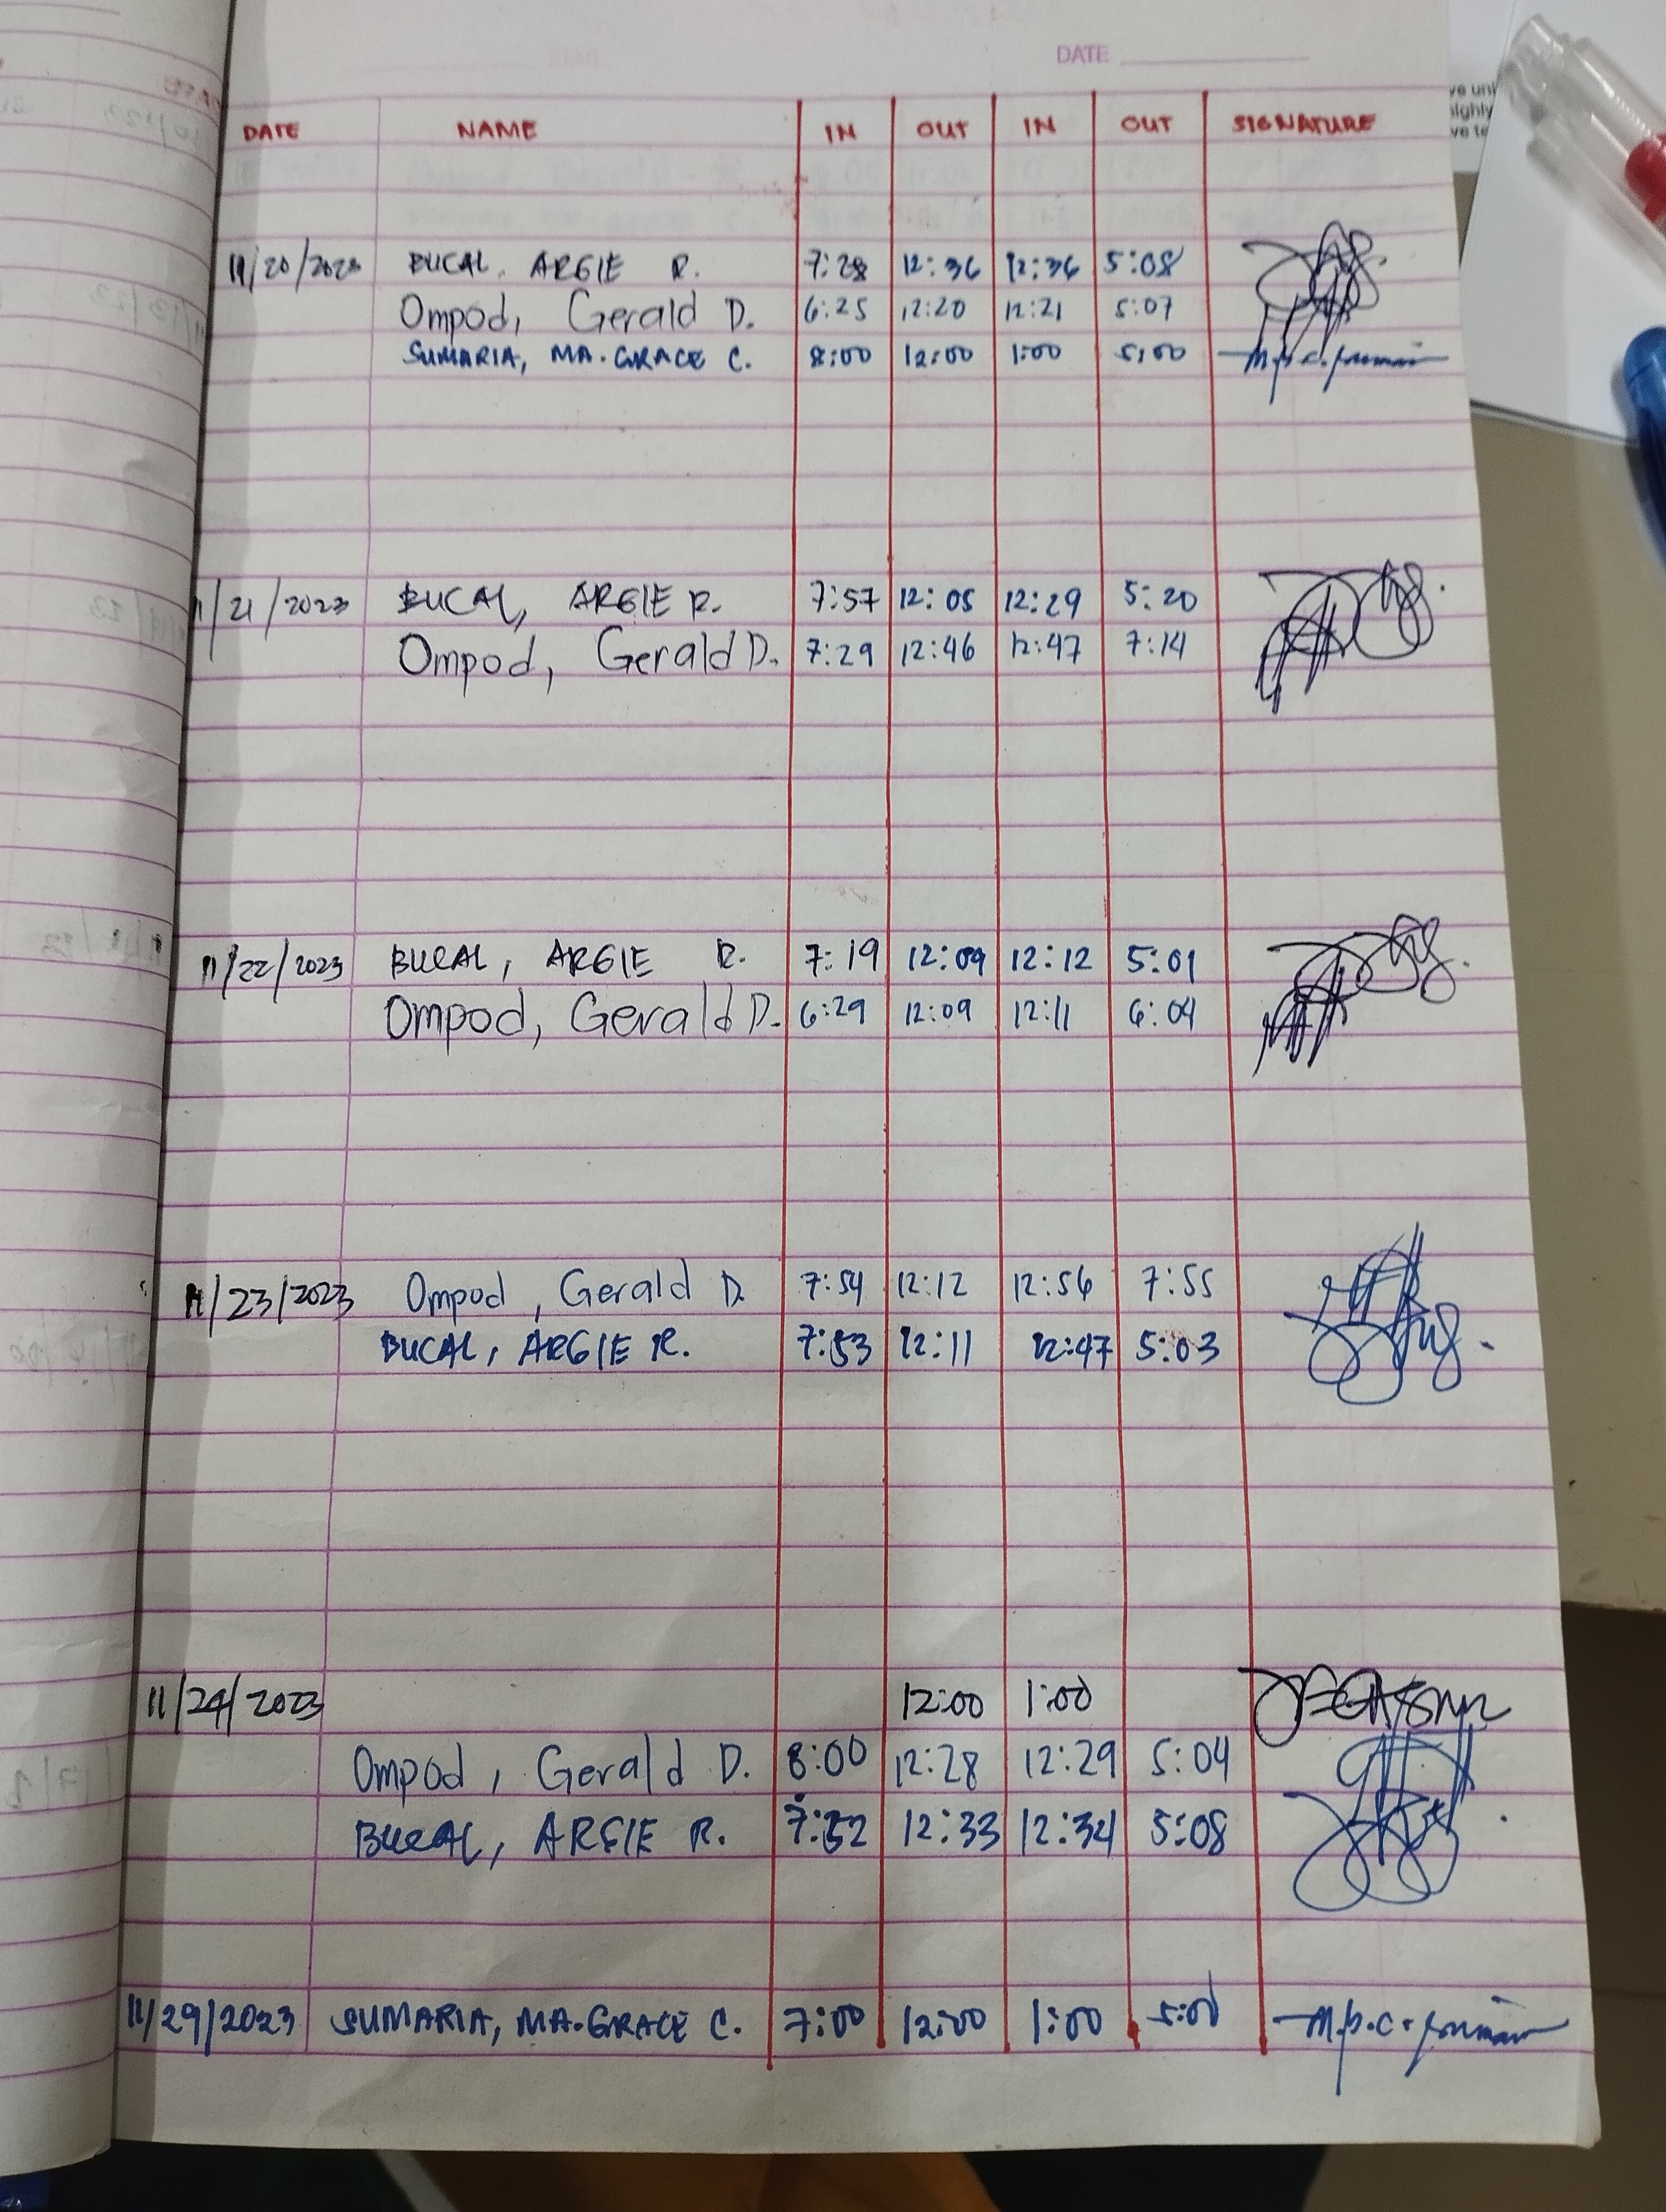 DATE
DATE NAME IN OUT IN OUT SIGNATURE
11/20/2023 BUCAL, ARGIE R. 7:28 12:36 12:36 5:08
Ompod, Gerald D. 6:25 12:20 12:21 5:07
SUMARIA, MA. GRACE C. 8:00 12:00 1:00 5:00
11/21/2023 BUCAL, ARGIE R. 7:57 12:05 12:29 5:20
Ompod, Gerald D. 7:29 12:46 12:47 7:14
11/22/2023 BUCAL, ARGIE R. 7:19 12:09 12:12 5:01
Ompod, Gerald D. 6:29 12:09 12:11 6:04
11/23/2023 Ompod, Gerald D. 7:54 12:12 12:56 7:55
BUCAL, ARGIE R. 7:53 12:11 12:47 5:03
11/24/2023 12:00 1:00
Ompod, Gerald D. 8:00 12:28 12:29 5:04
BUCAL, ARGIE R. 7:52 12:33 12:34 5:08
11/29/2023 SUMARIA, MA. GRACE C. 7:00 12:00 1:00 5:00